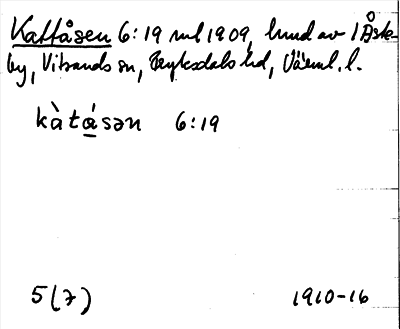 Kattåsen 6:19 ml 1909, hmd av 1 Åste-
by, Vitsands sn, Fryksdals hd, Värml. l.
kàtása̱n 6:19
5(7) 1910-16